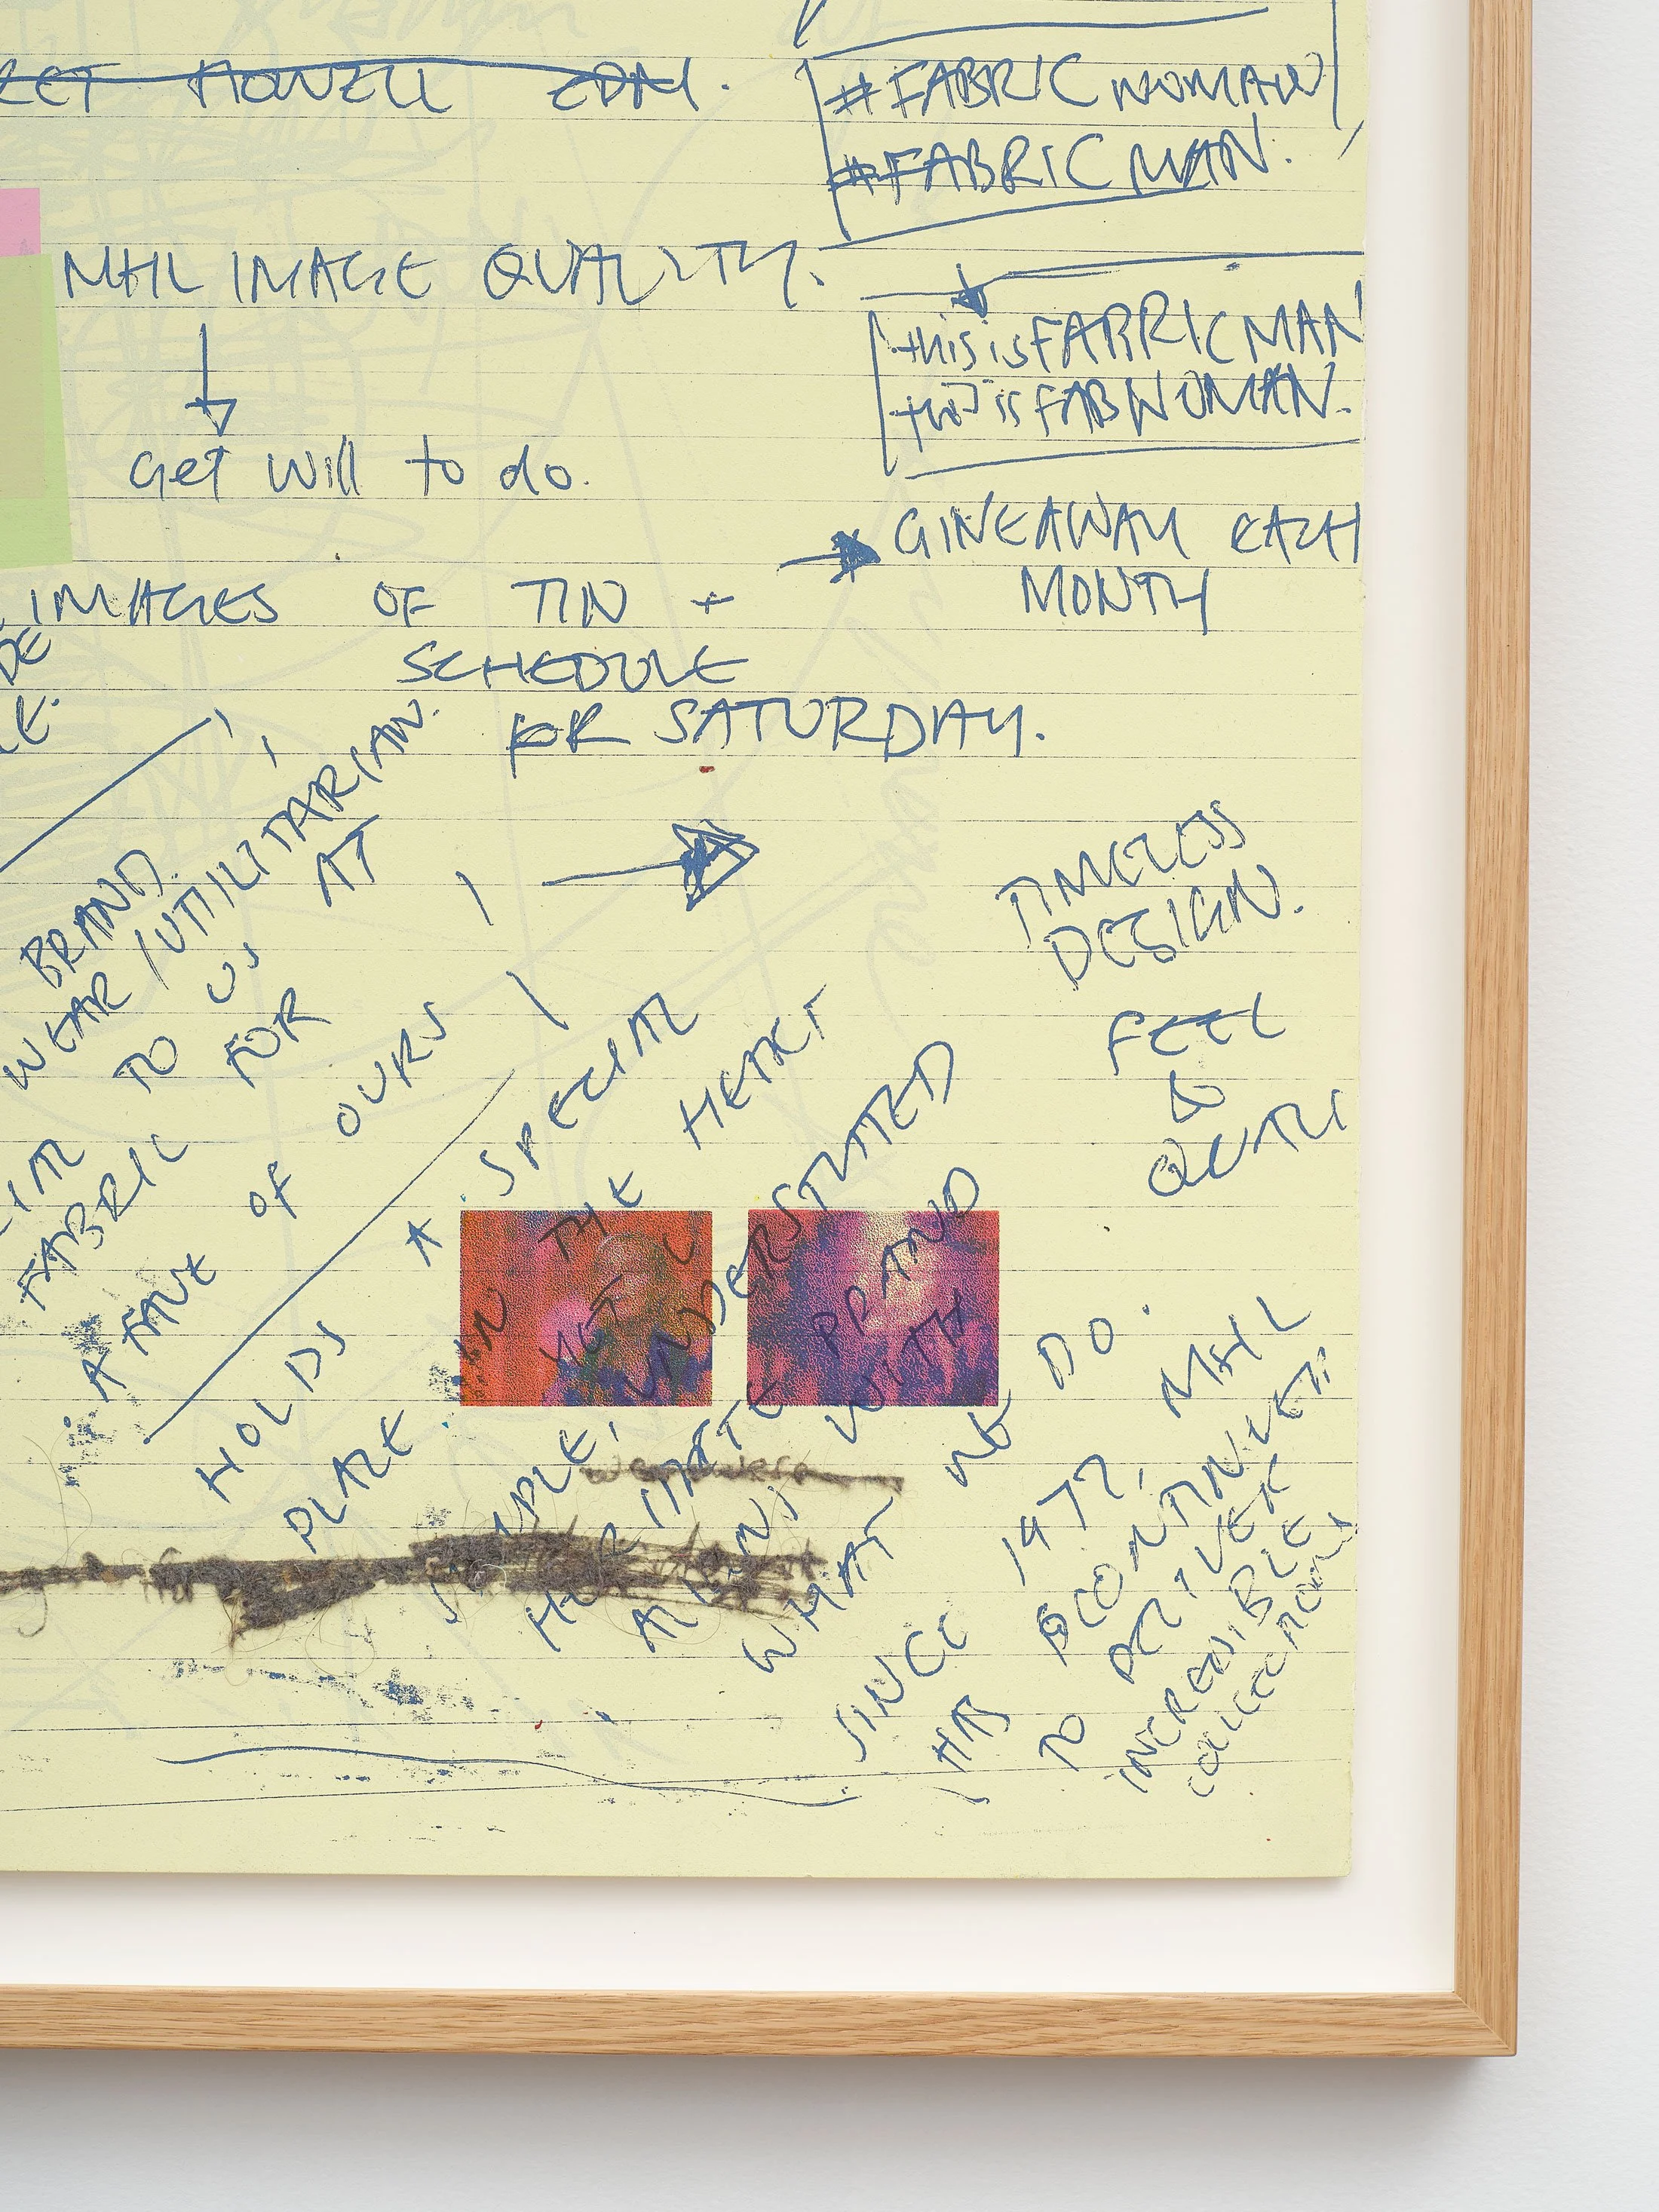 HOWELL EDM.
#FABRICWOMAN
#FABRICMAN.
MHL IMAGE QUALITY.
this is FABRICMAN
this is FABWOMAN.
Get Will to do.
GIVEAWAY EACH
MONTH
IMAGES OF TIN +
SCHEDULE
FOR SATURDAY.
BRAND.
WEAR / UTILITARIAN.
TO US AT
FABRIC FOR
A FAVE OF OURS
TIMELESS
DESIGN.
FEEL
&
HOLDS A SPECIAL
PLACE IN THE HEART
SIMPLE, YET UNDERSTATED
HERITAGE BRAND
ALIGNS WITH
WHAT WE DO.
SINCE 1977, MHL
HAS CONTINUED
TO DELIVER
INCREDIBLE
COLLECTIONS